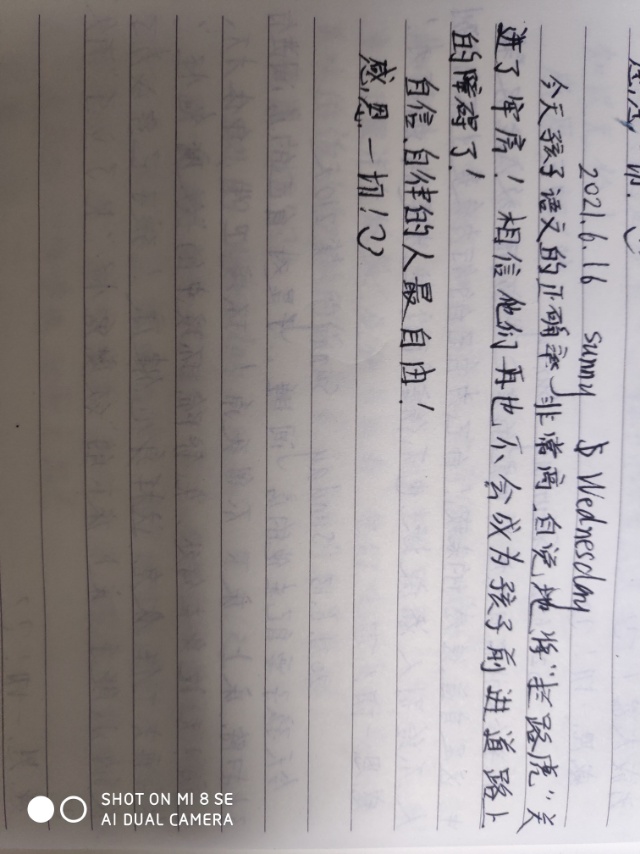 2021.6.16 sunny Wednesday
今天孩子语文的正确率非常高,自觉地将"拦路虎"关
进了牢房!相信他们再也不会成为孩子前进道路上
的障碍了!
自信、自律的人最自由!
感恩一切!
SHOT ON MI 8 SE
AI DUAL CAMERA